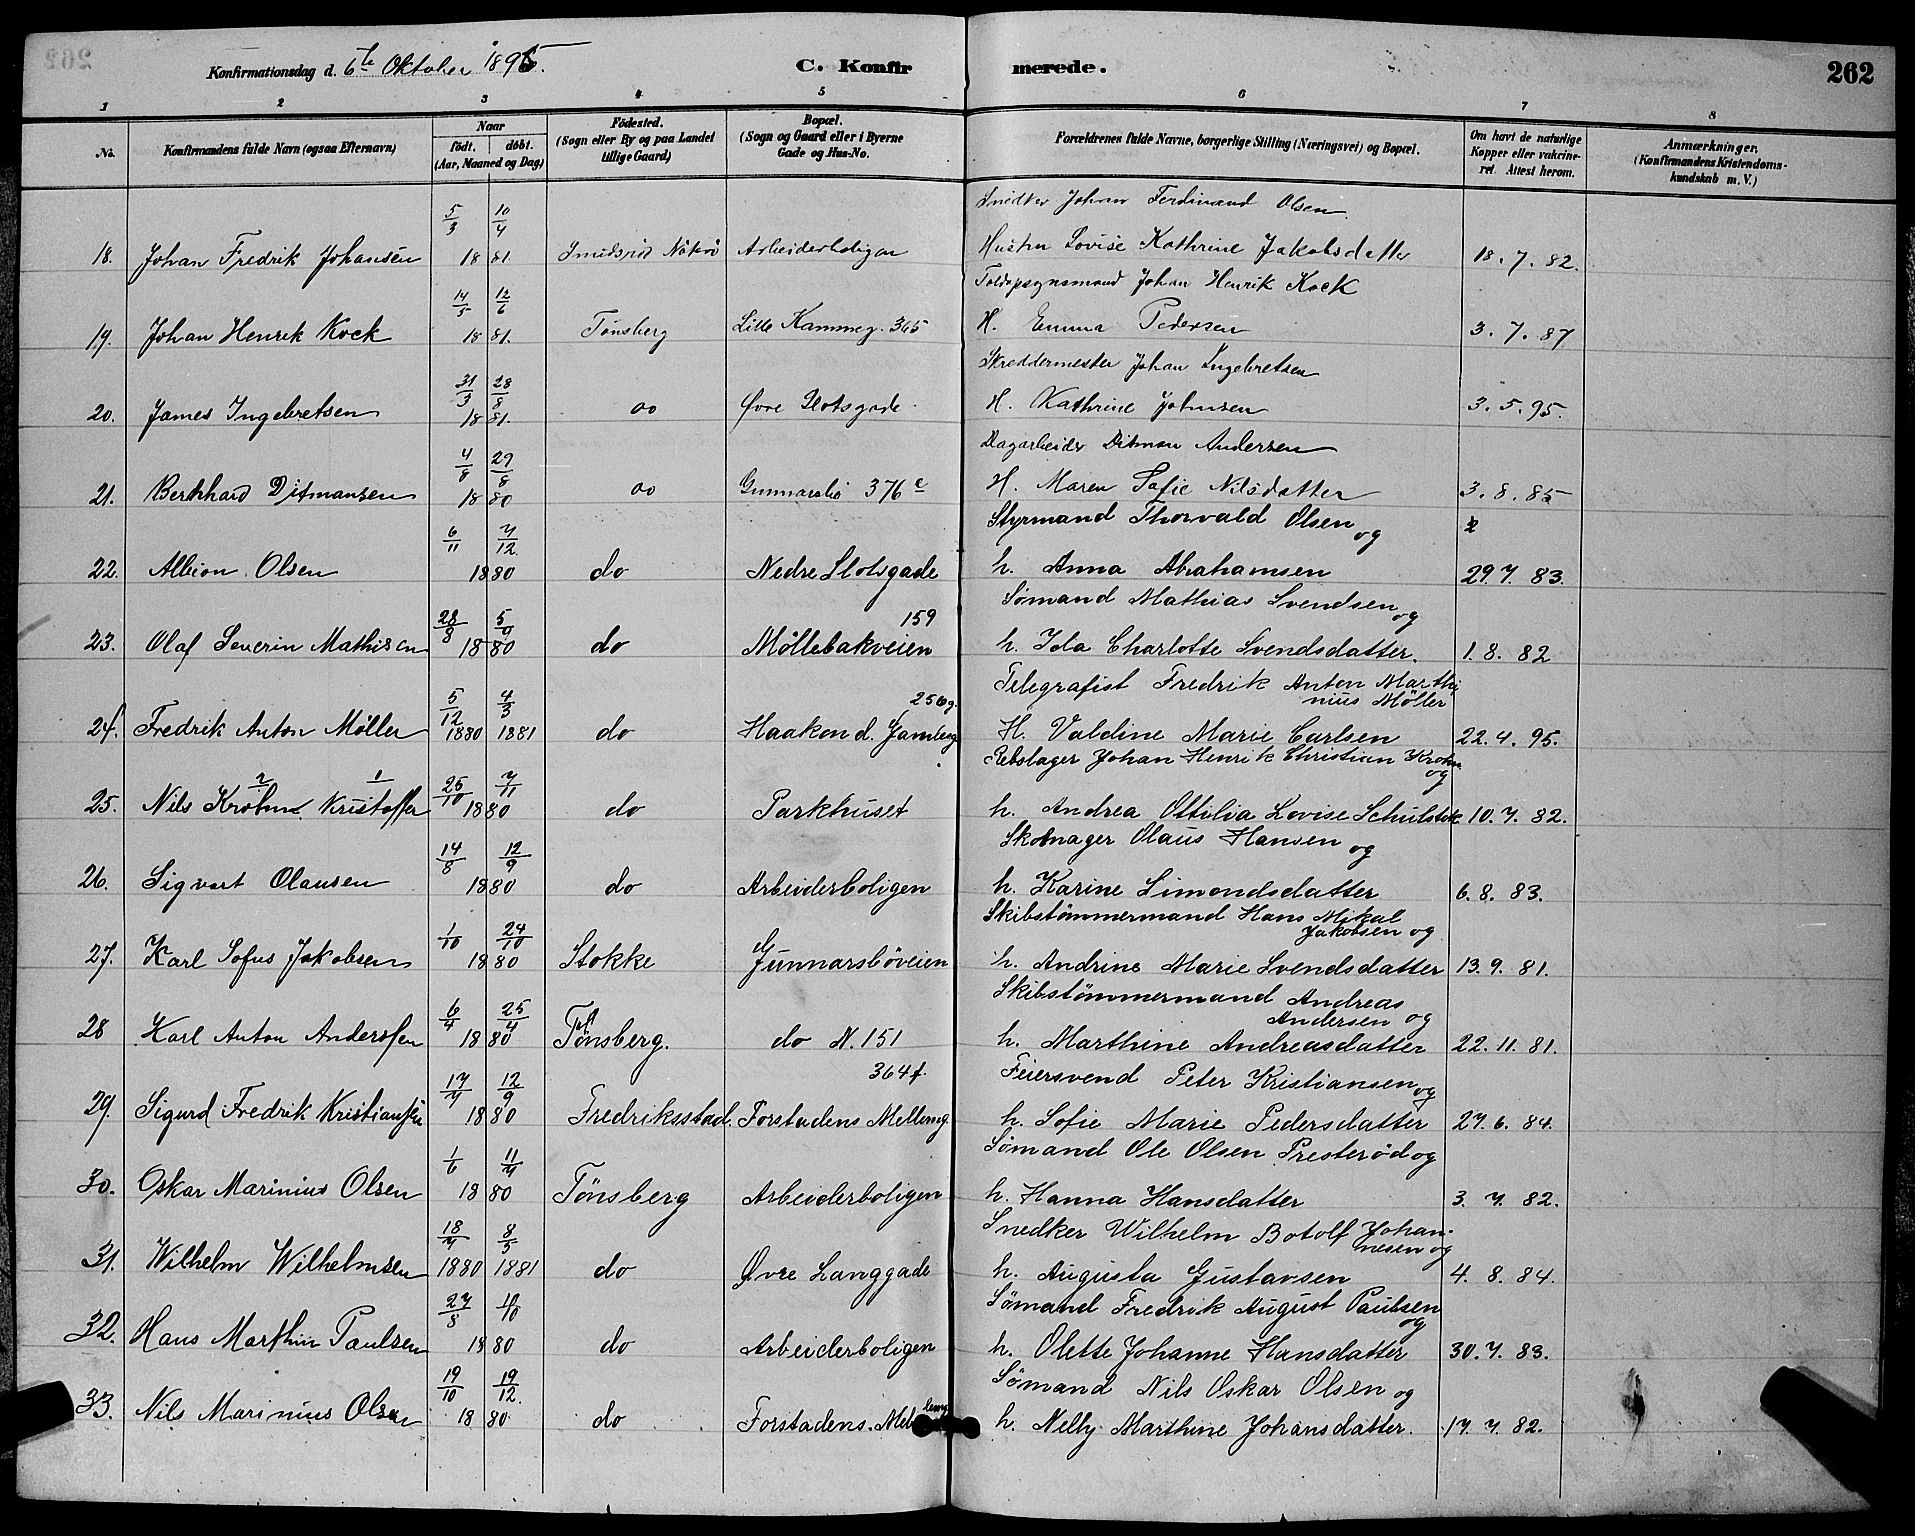 Konfirmationsdag d. 6te Oktober 1895. C. Konfirmerede. 262
1 2 3 4 5 6 7 8
No. Konfirmandens fulde Navn (ogsaa Efternavn) Naar født. døbt. (Aar, Maaned og Dag) Fødested. (Sogn eller By og paa Landet tillige Gaard) Bopæl. (Sogn og Gaard eller i Byerne Gade og Hus-No. Forældrenes fulde Navne, borgerlige Stilling (Næringsvei) og Bopæl. Om havt de naturlige Kopper eller vakcineret. Attest herom. Anmærkninger. (Konfirmandens Kristendomskundskab m. V.)
5/3 10/4 Snedker Johan Ferdinand Olsen
18. Johan Fredrik Johansen 1881. Smidsrød Nøtterø Arbeiderboligen Hustru Lovise Kathrine Jakobsdatter 18. 7. 82.
14/5 12/6 Toldopsynsmand Johan Henrik Kock
19. Johan Henrik Kock 1881. Tønsberg Lille Kammeg. 365 H. Emma Pedersen 3. 7. 87
31/3 28/8 Skreddermester Johan Ingebretsen
20. James Ingebretsen 1881. do Øvre Slotsgade H. Kathrine Johnsen 3. 5. 95.
4/8 29/8 Dagarbeider Ditman Andersen
21. Bernhard Ditmansen 1880 do Gunnarsbø 376 c H. Maren Sofie Nilsdatter 3. 8. 85
6/11 7/12 Styrmand Thorvald Olsen og
22. Albion Olsen 1880 do Nedre Slotsgade h. Anna Abrahamsen 29. 7. 83.
28/8 5/9 159 Sømand Mathias Svendsen og
23. Olaf Severin Mathisen 1880 do Møllebakveien h. Ida Charlotte Svendsdatter. 1. 8. 82
5/12 4/3 256 g. Telegrafist Fredrik Anton Marthinius Møller
24. Fredrik Anton Møller 1880 1881 do Haakon d. Gamleg H. Valdine Marie Carlsen 22. 4. 95.
25/10 7/11 Rebslager Johan Henrik Christian Krohn og
25. Nils Krohn Kristoffer 1880 do Parkhuset h. Andrea Ottilia Lovise Schulstok 10. 7. 82.
14/8 12/9 Skomager Olaus Hansen og
26. Sigvart Olausen 1880 do Arbeiderboligen h. Karine Simondsdatter 6. 8. 83.
1/10 24/10 Skibstømmermand Hans Mikal Jakobsen og
27. Karl Sofus Jakobsen 1880 Stokke Gunnarsbøveien h. Andrine Marie Svendsdatter 13. 9. 81.
6/4 25/4 Skibstømmermand Andreas Andersen og
28 Karl Anton Anderssen 1880 Tønsberg. do N. 151 h. Marthine Andreasdatter 22. 11. 81.
17/7 12/9 364 f. Feiersvend Peter Kristiansen og
29. Sigurd Fredrik Kristianssen 1880 Fredriksstad. Forstadens Mellemg. h. Sofie Marie Pedersdatter 27. 6. 84.
1/6 11/7 Sømand Ole Olsen Presterød og
30. Oskar Marinius Olsen 1880 Tønsberg Arbeiderboligen h. Hanna Hansdatter 3. 7. 82.
18/7 8/5 Snedker Wilhelm Botolf Johannesen og
31. Wilhelm Wilhelmsen 1880 1881 do Øvre Langgade h. Augusta Gustavsen 4. 8. 84.
27/8 10/10 Sømand Fredrik August Paulsen og
32. Hans Marthin Paulsen 1880 do Arbeiderboligen h. Olette Johanne Hansdatter 30. 7. 83.
19/10 19/12. Sømand Nils Oskar Olsen og
33. Nils Marinius Olsen 1880 do Forstadens Mellemg h. Nelly Marthine Johansdatter. 17. 7. 82.